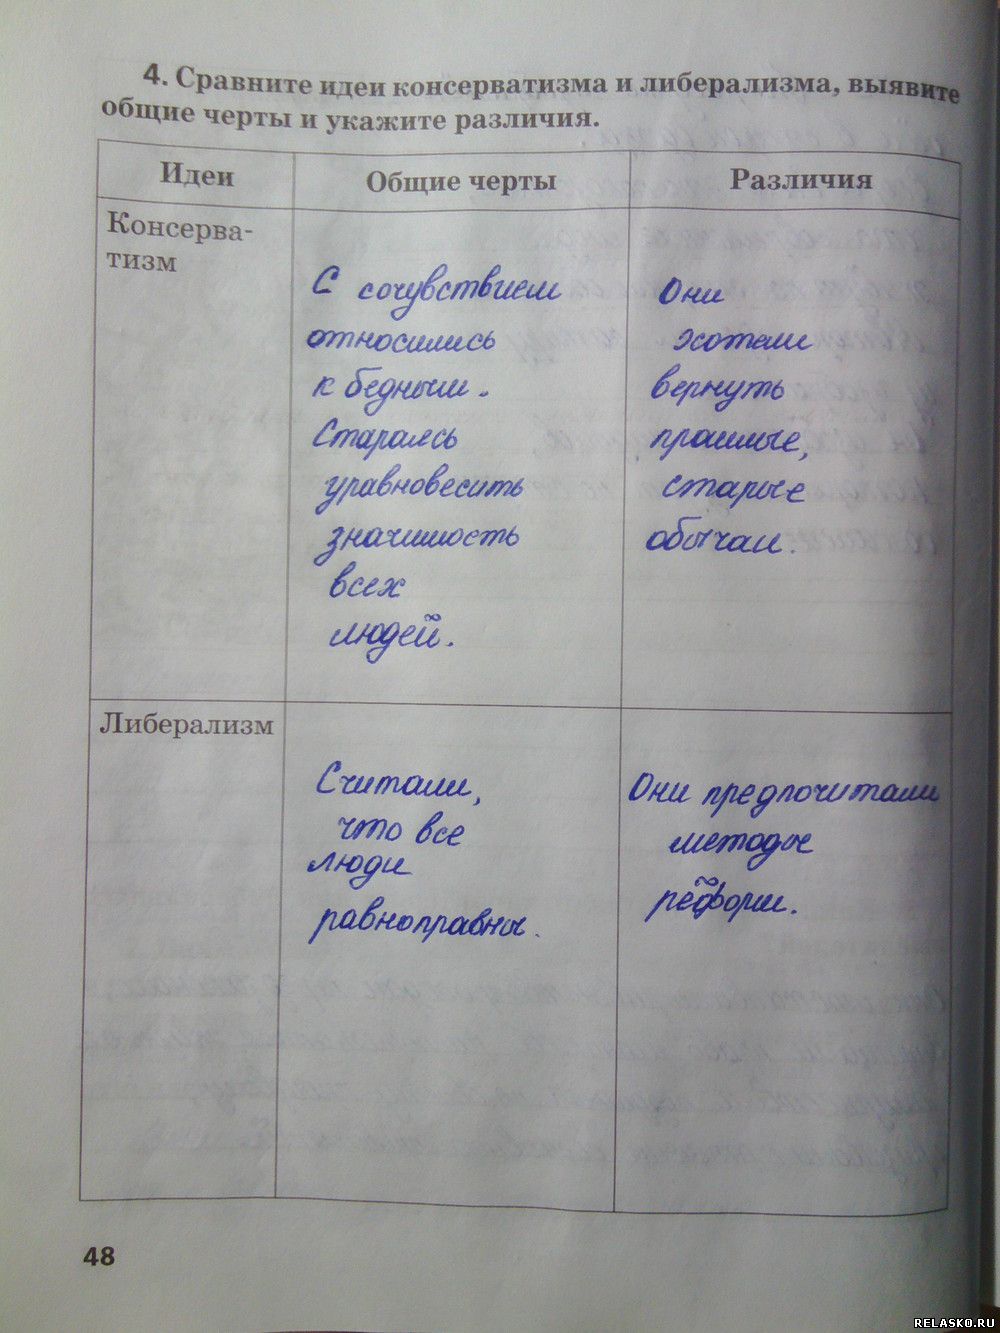 4. Сравните идеи консерватизма и либерализма, выявите
общие черты и укажите различия.
Идеи
Общие черты
Различия
Консерва-
тизм
С сочувствием
относились
к бедным.
Стараясь
уравновесить
значимость
всех
людей.
Они
хотели
вернуть
прошлые,
старые
обычаи.
Либерализм
Считали,
что все
люди
равноправны.
Они предпочитали
методы
реформ.
48
RELASKO.RU